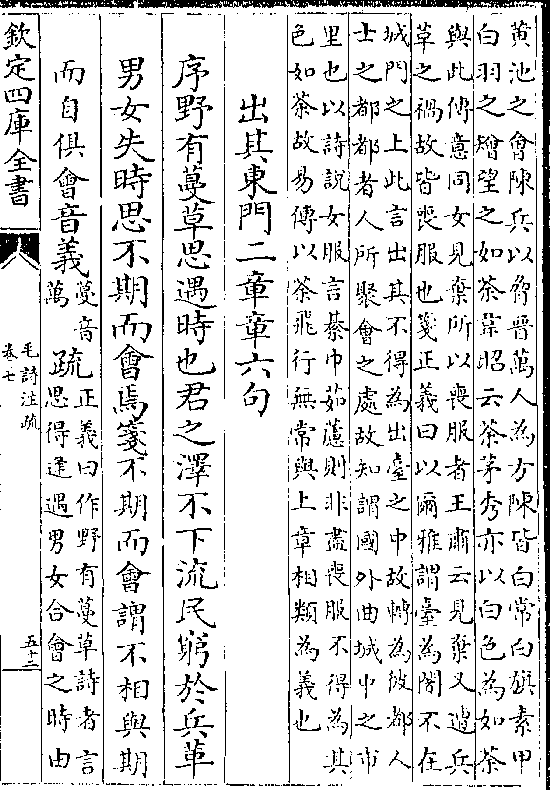 黄池之會陳兵以脅晉萬人為方陳皆白常白旗素甲
白羽之矰望之如荼韋昭云荼茅秀亦以白色為如荼
與此傳意同女見棄所以喪服者王肅云見棄又遭兵
草之禍故皆喪服也箋正義曰以爾雅謂臺為闍不在
城門之上此言出其不得為出臺之中故轉為彼都人
士之都都者人所聚會之處故知謂國外曲城中之市
里也以詩說女服言綦巾茹藘則非盡喪服不得為其
色如荼故易傳以荼飛行無常與上章相類為義也
出其東門二章章六句
序野有蔓草思遇時也君之澤不下流民窮於兵革
男女失時思不期而會焉箋不期而會謂不相與期
而自俱會音義蔓音萬疏正義曰作野有蔓草詩者言
思得逢遇男女合會之時由
欽定四庫全書
毛詩注疏
卷七
五十二